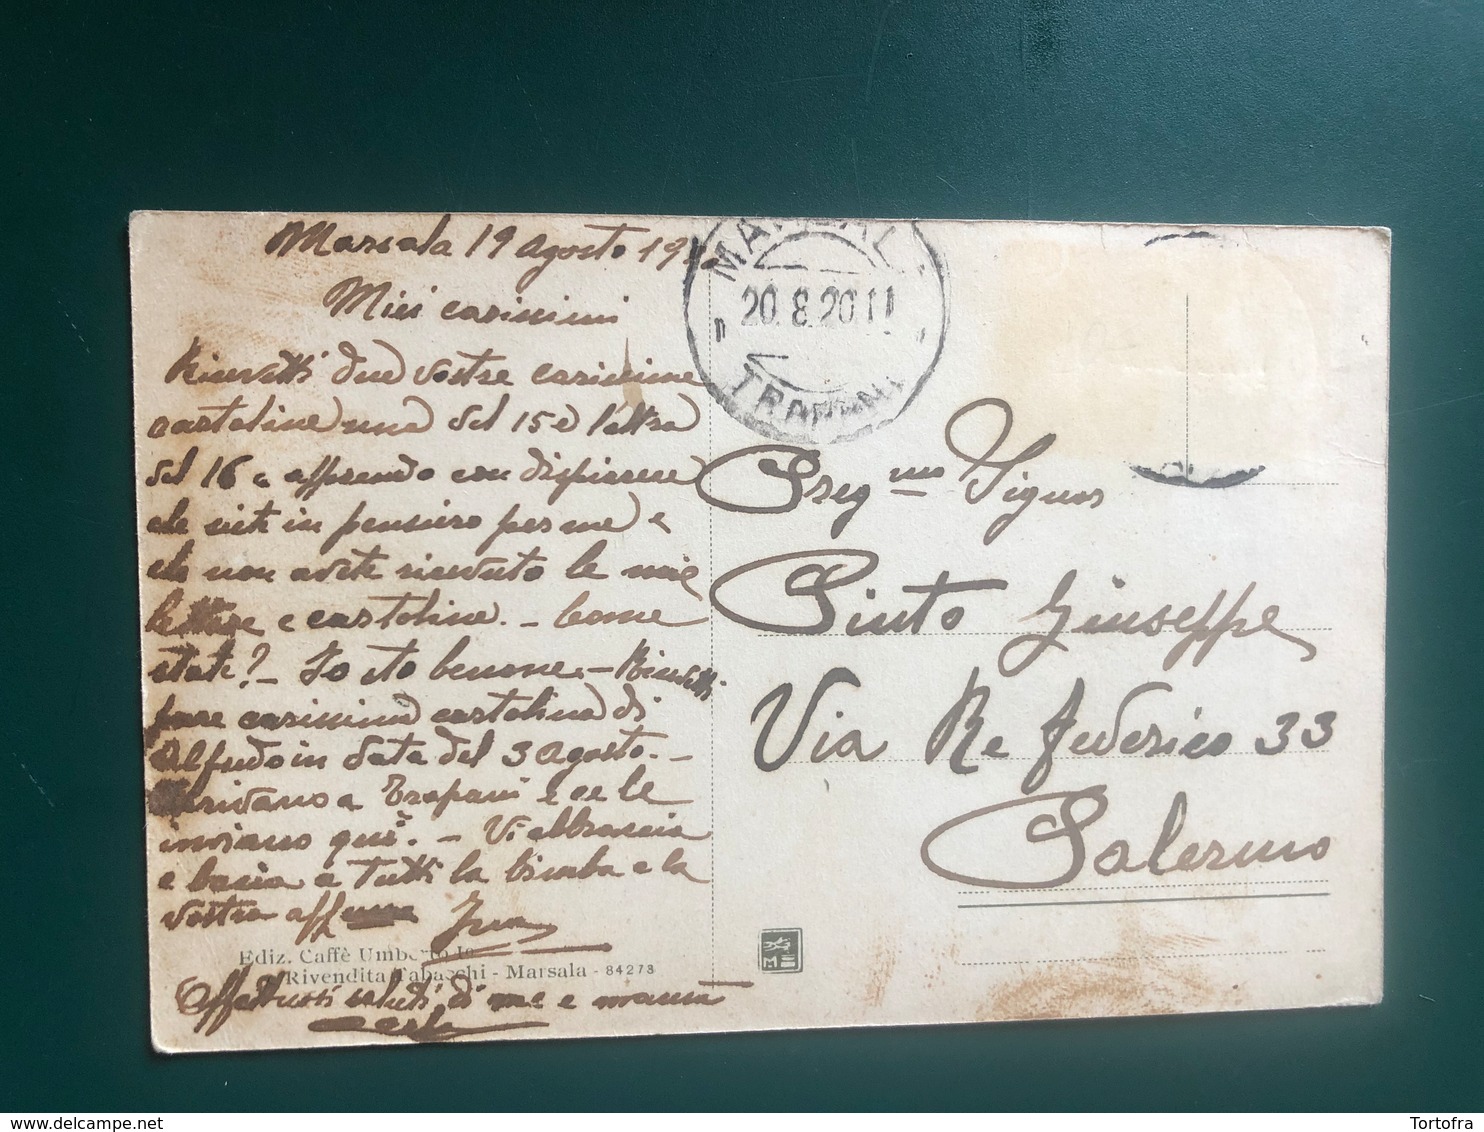 Marsala 19 agosto 19
Miei carissimi
Ricevetti due vostre carissime
cartoline una del 15 e l'altra
del 16 e apprendo con dispiacere
che siete in pensiero per me e
che non avete ricevuto le mie
lettere e cartoline. - Come
state? - Io sto benone. - Ricevetti
pure carissima cartolina di
Alfredo in data del 3 agosto. -
Scrivano a Trapani e ce le
inviano quì. - Vi abbraccia
e bacia a tutti la bimba e la
vostra aff
Ediz. Caffè Umberto Io
Rivendita Tabacchi - Marsala - 84278
Affettuosi saluti di me e mamà
MARSALA
20.8.20.11
TRAPANI
Preg mo Signor
Pinto Giuseppe
Via Re Federico 33
Palermo
delcampe.net
Tortofra